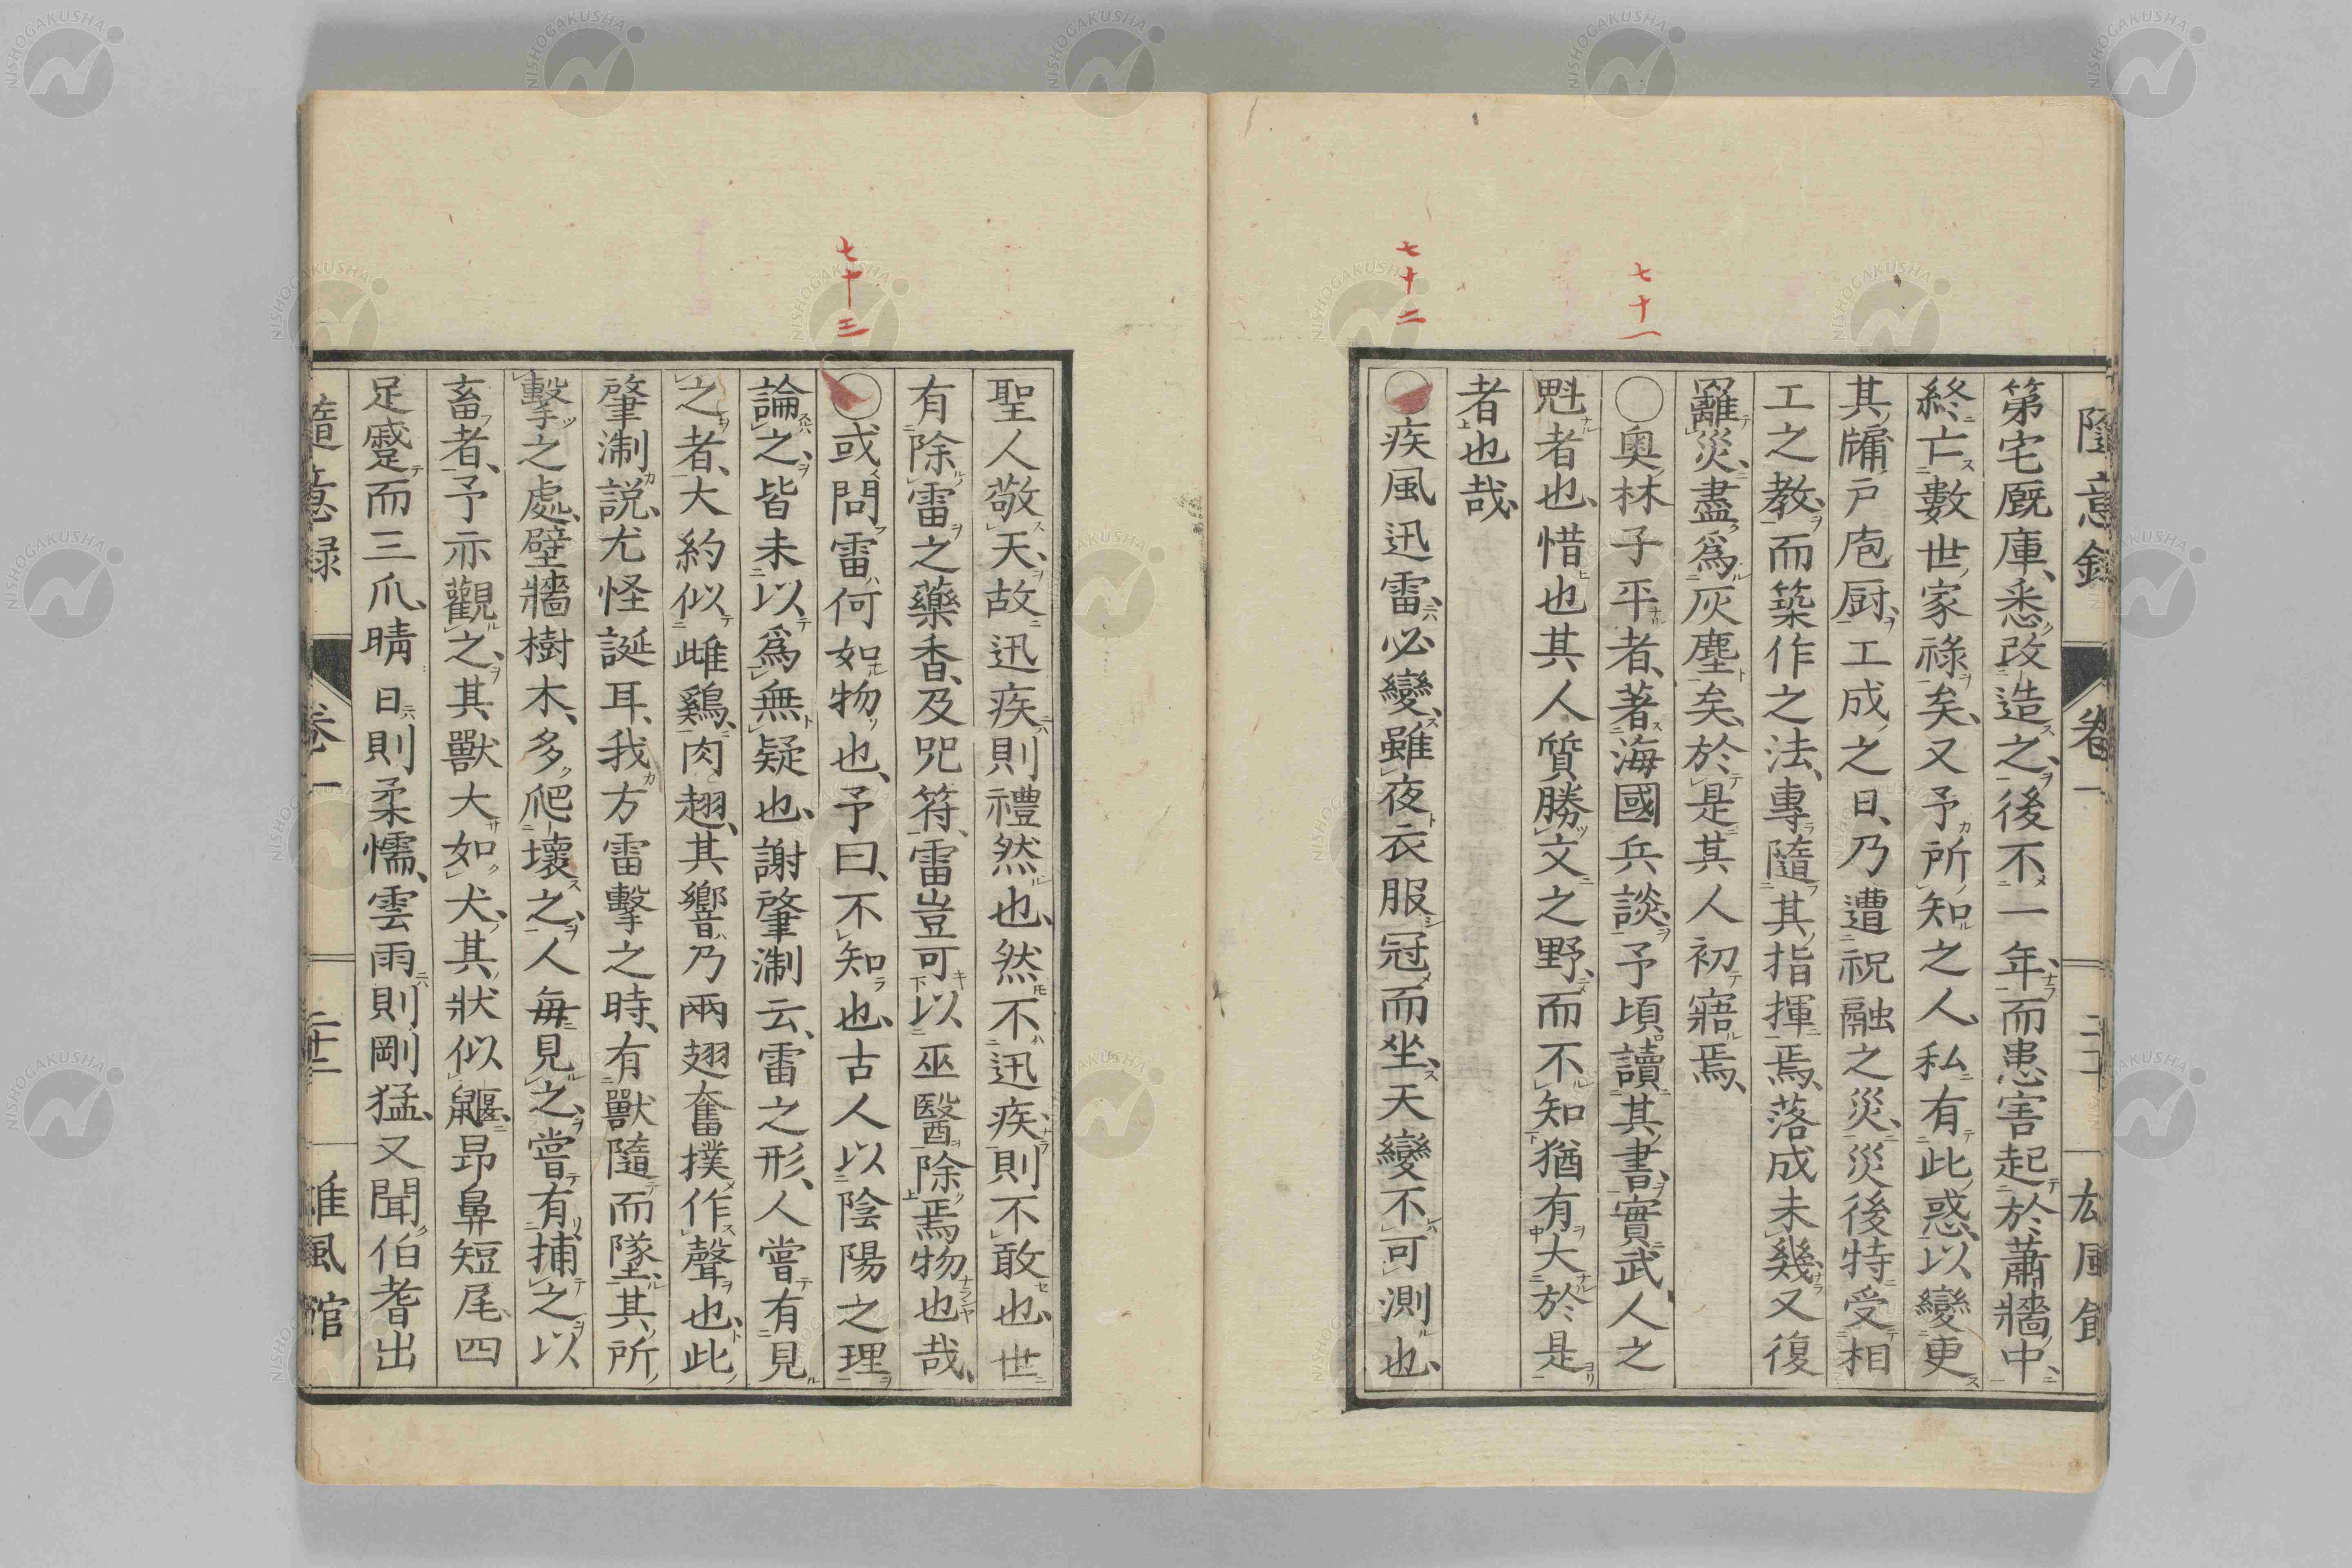 七十一
七十二
隨意録
卷一
第宅厩庫、悉改造之、後不一年、而患害起於蕭牆中、
終亡數世家祿矣、又予所知之人、私有此惑、以變更
其牗戸庖厨、工成之日、乃遭祝融之災、災後特受相
工之教、而築作之法、專隨其指揮焉、落成未幾、又復
罹災、盡爲灰塵矣、於是其人初寤焉、
○奥林子平者、著海國兵談、予頃讀其書、實武人之
魁者也、惜也其人質勝文之野、而不知猶有大於是
者也哉、
○疾風迅雷、必變、雖夜衣服冠而坐、天變不可測也、
七十三
聖人敬天、故迅疾則禮然也、然不迅疾、則不敢也、世
有除雷之藥香、及咒符、雷豈可以巫醫除焉物也哉、
○或問雷何如物也、予曰、不知也、古人以陰陽之理
論之、皆未以爲無疑也、謝肇淛云、雷之形、人嘗有見
之者、大約似雌雞、肉翅、其響乃兩翅奮撲作聲也、此
肇淛説、尤怪誕耳、我方雷擊之時、有獸隨而墜、其所
擊之處、壁牆樹木、多爬壞之、人毎見之、嘗有捕之以
畜者、予亦觀之、其獸大如犬、其狀似鼴、昂鼻短尾、四
足蹙而三爪、晴日則柔懦、雲雨則剛猛、又聞伯耆出
隨意録
卷一
NISHOGAKUSHA